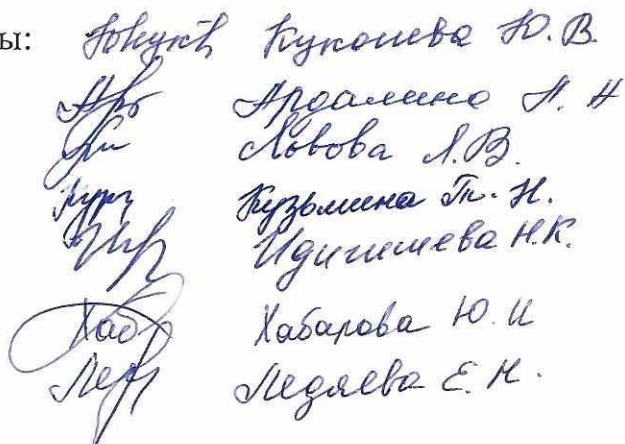 ы: Кукошева Ю.В.
Ардалина Н. Н
Львова Л.В.
Кузьмина Т.Н.
Идигишева Н.К.
Хаб Хабарова Ю.И
Ледяева Е.Н.